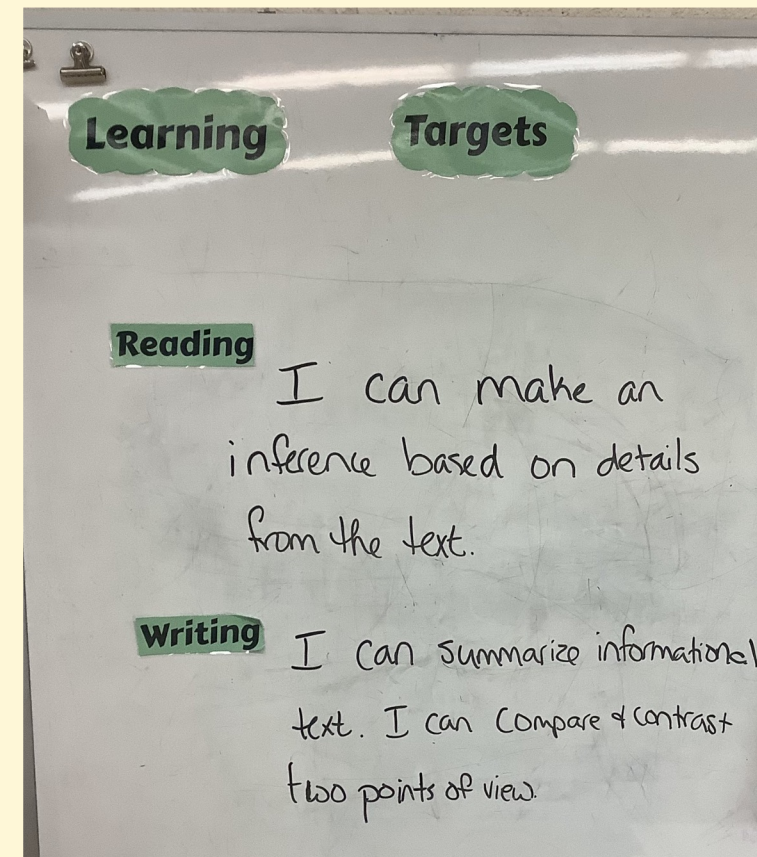 Learning Targets
Reading
I can make an
inference based on details
from the text.
Writing
I can summarize informational
text. I can compare & contrast
two points of view.